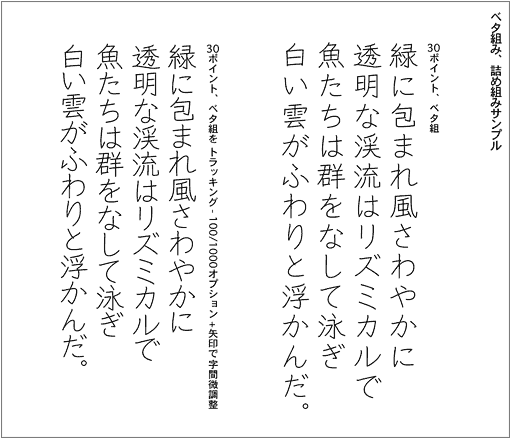 ベタ組み、詰め組みサンプル
30ポイント、ベタ組
緑に包まれ風さわやかに
透明な渓流はリズミカルで
魚たちは群をなして泳ぎ
白い雲がふわりと浮かんだ。
30ポイント、ベタ組をトラッキング-100/1000オプション+矢印で字間微調整
緑に包まれ風さわやかに
透明な渓流はリズミカルで
魚たちは群をなして泳ぎ
白い雲がふわりと浮かんだ。